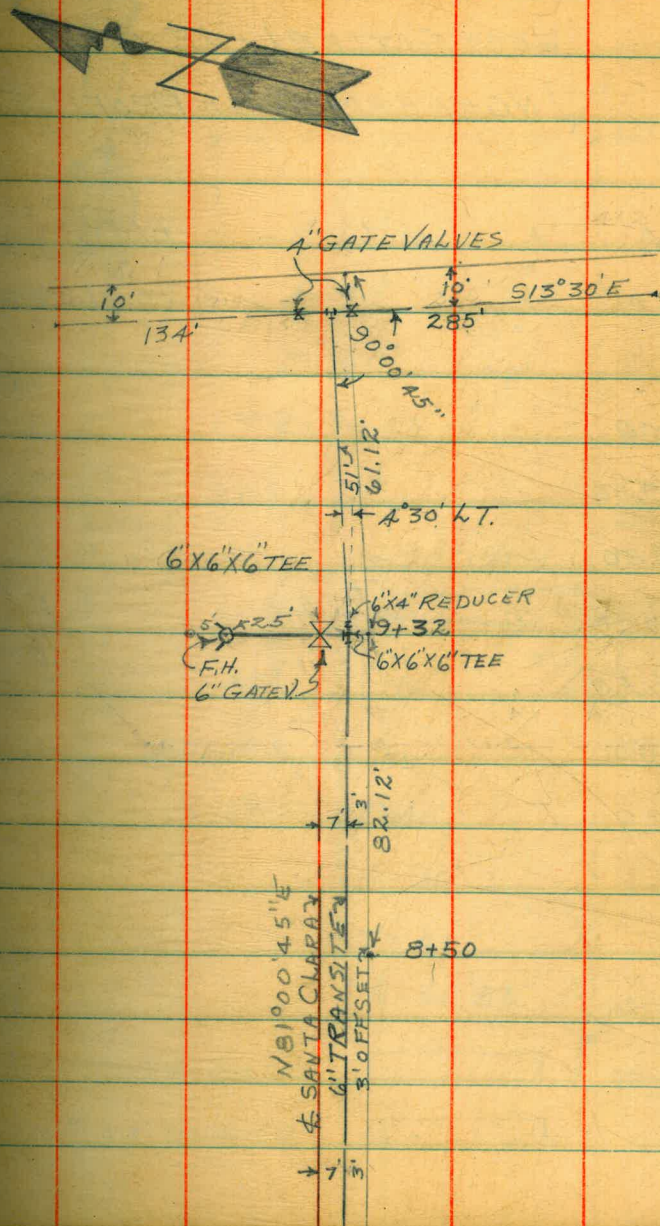 N
4" GATE VALVES
10'
10'
S13°30'E
134'
285'
90°00'45"
51'
61.12'
4°30' LT.
6"X6"X6" TEE
6"X4" REDUCER
5'
25'
9+32
6"X6"X6" TEE
F.H.
6" GATE V.
82.12'
7'
3'
8+50
N81°00'45"E
℄ SANTA CLARA
6" TRANSITE
3' OFFSET
7'
3'